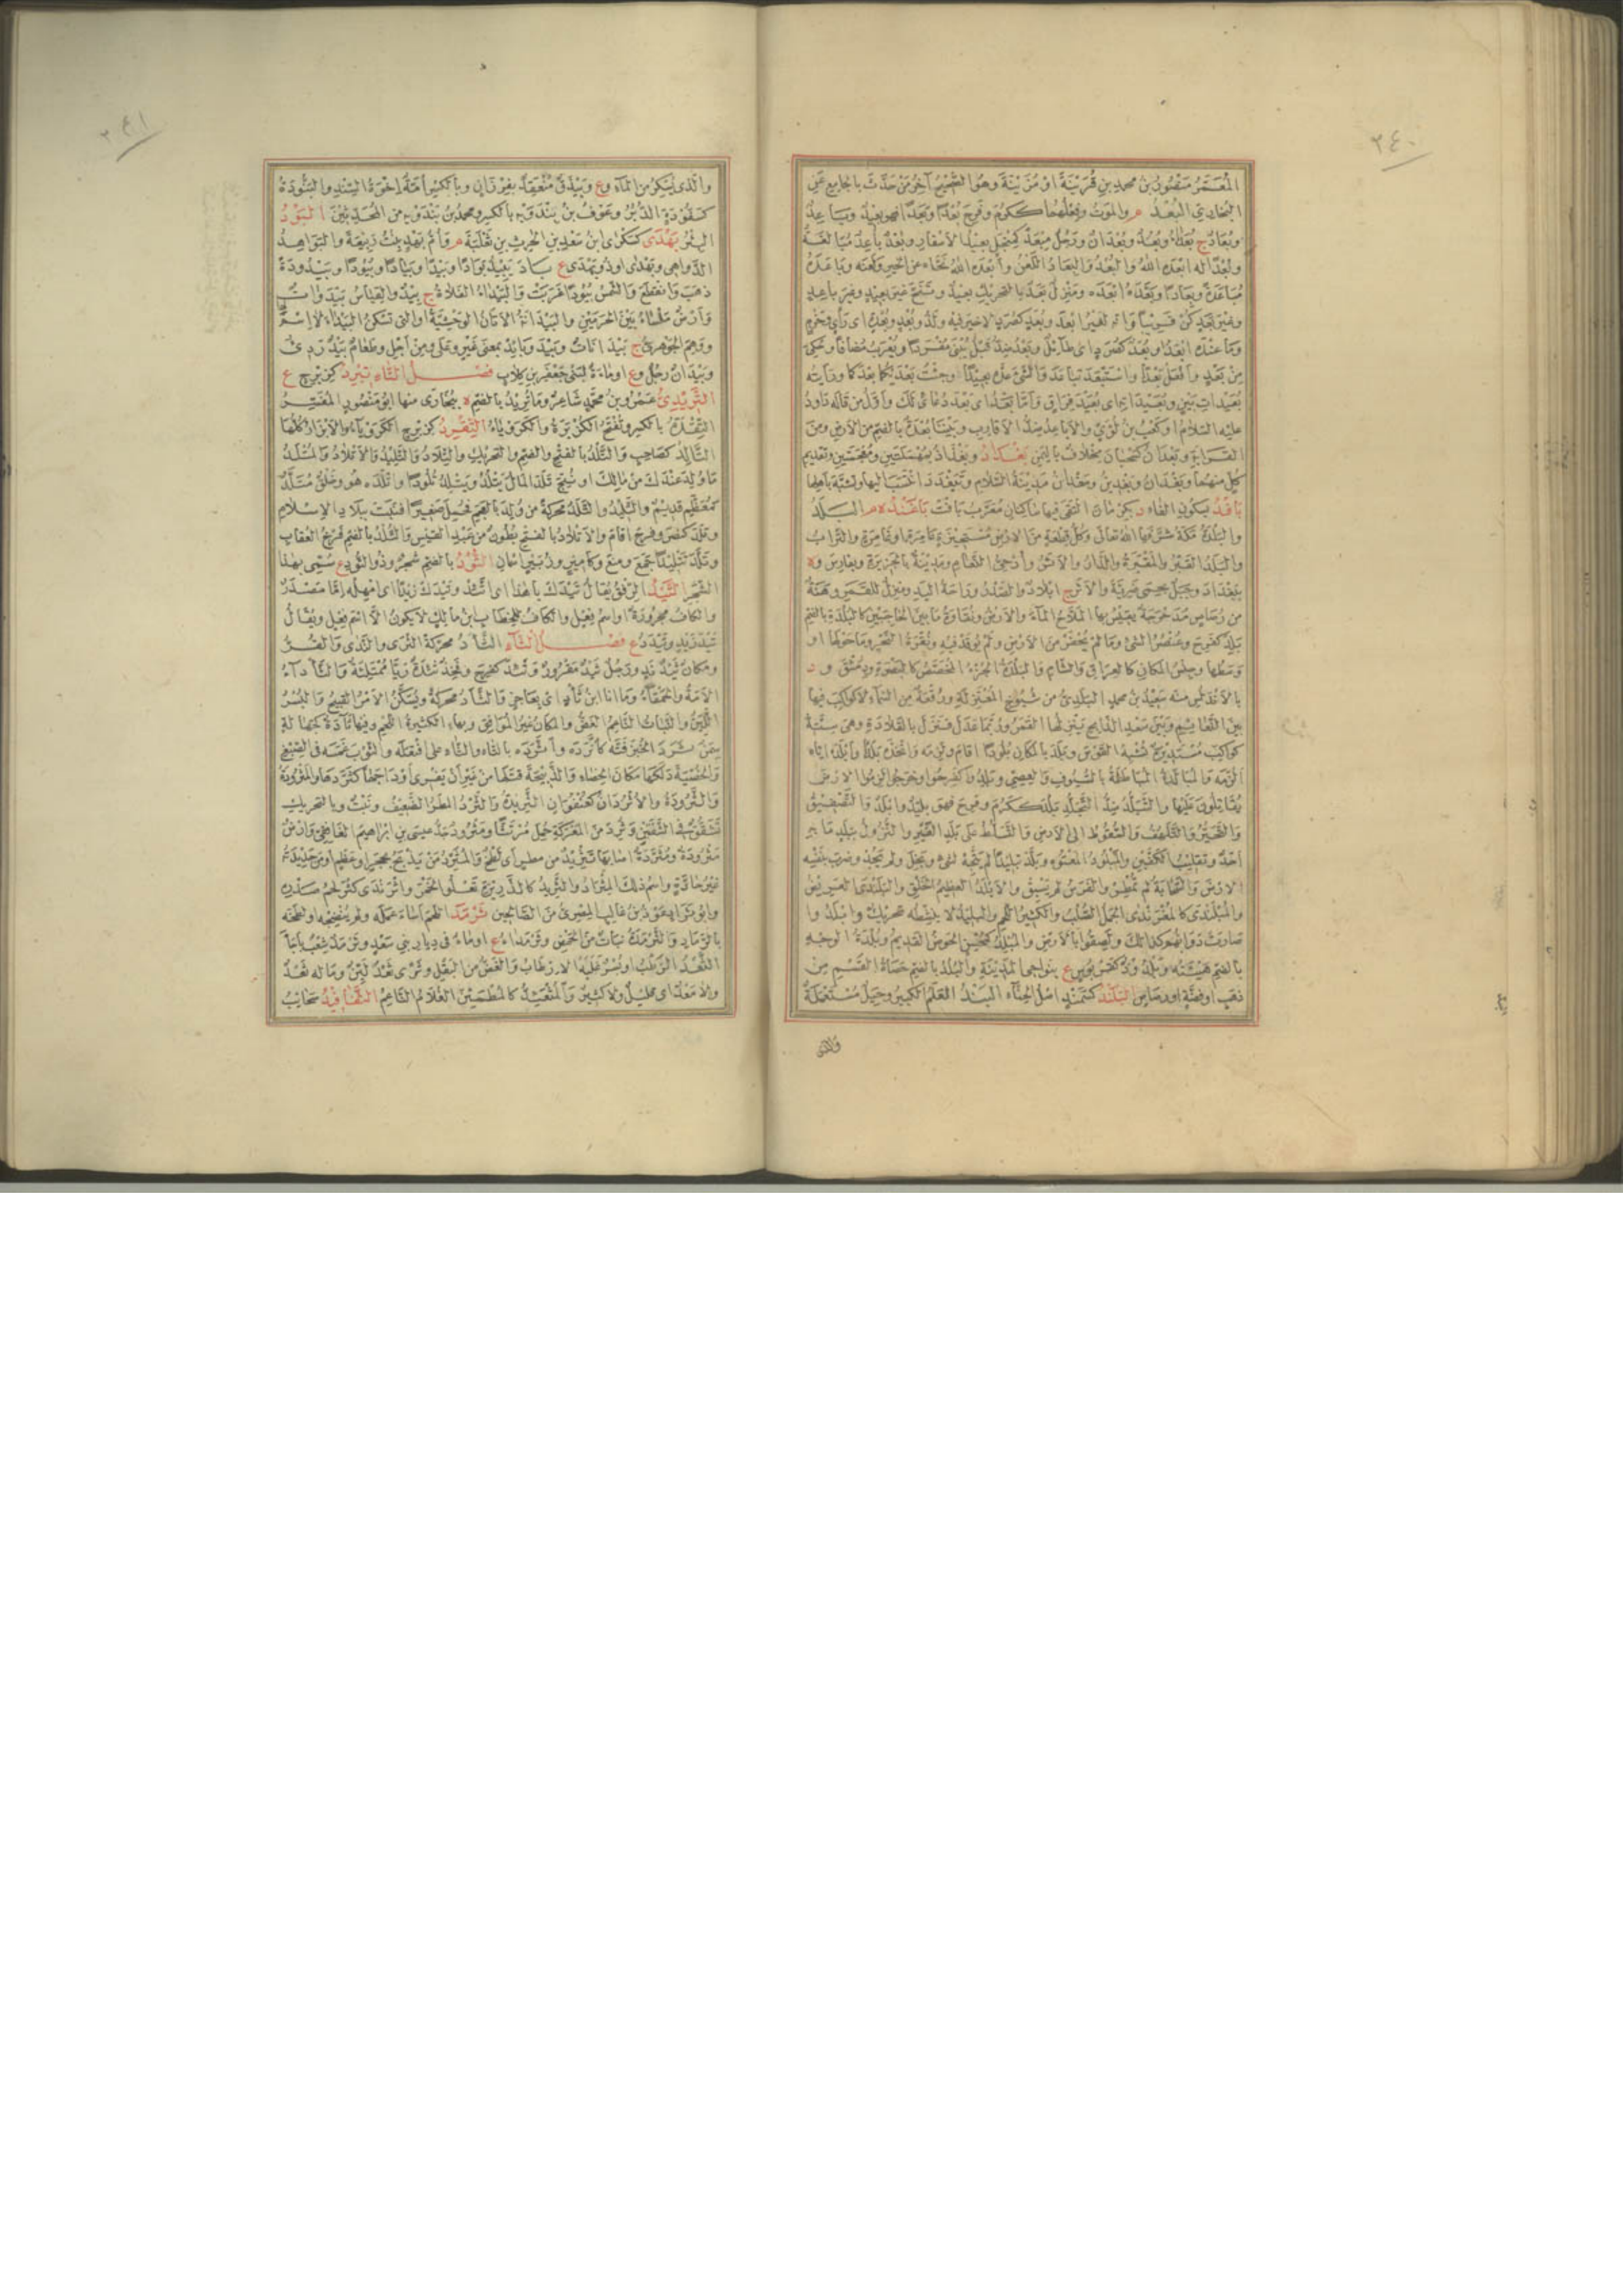 ٢٤٠
المُعَمَّرُ مَنْصُورُ بنُ محمدِ بنِ قُرَيْنَةَ أو مُزَيْنَةَ وهُوَ الصَّحِيحُ آخِرُ مَنْ حَدَّثَ بالجامِعِ عَنِ
البُخارِيِّ البُعْدُ م والمَوْتُ وفِعْلُهُما ككَرُمَ وفَرِحَ بُعْدًا وبَعَدًا فهو بعيدٌ وباعِدٌ
وبُعادٌ ج بُعَداءُ وبُعُدٌ وبُعْدانٌ ورَجُلٌ مِبْعَدٌ كمِنْجَلٍ بعيدُ الأسْفارِ وبُعْدٌ باعِدٌ مُبالَغَةٌ
وبُعْدًا له أبْعَدَهُ اللهُ والبُعْدُ والبِعادُ اللَّعْنُ وأبْعَدَه اللهُ نَحَّاه عن الخَيْرِ ولَعَنَه وباعَدَهُ
مُباعَدَةً وبِعادًا وبَعَّدَهُ أبْعَدَه ومَنْزِلٌ بَعَدٌ بالتحريكِ بعيدٌ وتَنَحَّ غيرَ بعيدٍ وغيرَ باعِدٍ
وغيرَ بَعَدٍ كُنْ قريبًا وإنه لغيرُ أبْعَدَ وبُعَدٍ كصُرَدٍ لا خيرَ فيه ولَذُو بُعْدٍ وبُعْدَةٍ أي رَأيٍ وحَزْمٍ
وما عندَه أبْعَدُ أو بُعَدٌ كصُرَدٍ أي طائِلٌ وبَعْدُ ضِدُّ قَبْلُ يُبْنَى مُفْرَدًا ويُعْرَبُ مُضافًا وحُكِيَ
مِنْ بَعْدٍ وافْعَلْ بَعْدًا واسْتَبْعَدَ تباعَدَ والشيءَ عَدَّه بعيدًا وجِئْتُ بَعْدَيْكُما بَعْدَكُما ورأيتُه
بُعَيْداتِ بَيْنٍ وبُعَيْدَاتِه أي بُعَيْدَ فِراقٍ وأمَّا بَعْدُ أي بَعْدَ دُعائِي لَكَ وأوَّلُ من قاله داوُدُ
عليه السَّلامُ أو كَعْبُ بنُ لُؤَيٍّ والأباعِدُ ضِدُّ الأقارِبِ وبَيْنَنا بُعْدَةٌ بالضمِّ من الأرضِ ومنَ
القَرابةِ وبَعْدانُ كسَحْبانَ مِخْلافٌ باليَمَنِ بَغْدادُ وبَغْذاذُ بمُهْمَلَتَيْنِ ومُعْجَمَتَيْنِ وتقديمِ
كلٍّ منهما وبَغْدانُ وبَغْدينُ ومَغْدانُ مَدينَةُ السَّلامِ وتَبَغْدَدَ انْتَسَبَ إليها وتَشَبَّهَ بأهلِها
بافْدُ بسكونِ الفاءِ د بكِرْمانَ الْتَقَى فيها ساكنانِ مُعَرَّبُ بافْتْ باقَنْدُ ه م البَلَدُ
والبَلْدَةُ مَكَّةُ شرَّفها اللهُ تعالى وكُلُّ قِطْعَةٍ من الأرضِ مُسْتَحِيزَةٍ عامِرَةٍ أو غامِرَةٍ والتُّرابُ
والبَلَدُ القَبْرُ والمَقْبَرَةُ والدَّارُ والأثَرُ وأُدْحِيُّ النَّعامِ ومدينةٌ بالجَزيرةِ وبفارِسَ وه
ببَغْدادَ وجَبَلٌ بحِمَى ضَرِيَّةَ والأثَرُ ج أبلادٌ والصَّدْرُ وراحةُ اليَدِ ومَنْزِلٌ للقَمَرِ وهَنَةٌ
من رَصاصٍ مُدَحْرَجَةٌ يَقيسُ بها المَلَّاحُ الماءَ والأرضُ ونُقاوَةُ ما بينَ الحاجِبَيْنِ كالبُلْدَةِ بالضمِّ
بَلِدَ كفَرِحَ وعُنْصُرُ الشيءِ وما لم يُحْفَرْ من الأرضِ ولم يُوقَدْ فيه وثُغْرَةُ النَّحْرِ وما حَوْلَها أو
وَسَطُها وجِنْسُ المكانِ كالعِراقِ والشَّامِ والبَلْدَةُ الجُزْءُ المُخَصَّصُ كالبَصْرَةِ ودِمَشْقَ و د
بالأنْدَلُسِ منه سَعِيدُ بنُ محمدٍ البَلَدِيُّ من شُيوخِ المُعْتَزِلةِ ورُقْعَةٌ مِن السَّماءِ لا كواكِبَ فيها
بينَ النَّعائِمِ وبينَ سَعْدِ الذَّابِحِ يَنْزِلُها القَمَرُ ورُبَّما عَدَلَ فنَزَلَ بالقِلادةِ وهي سِتَّةُ
كواكِبَ مُسْتَديرةٌ تُشْبِهُ القَوْسَ وبَلَدَ بالمَكانِ بُلُودًا أقامَ ولَزِمَه واتَّخَذَه بَلَدًا وأبْلَدَهُ إيَّاه
ألْزَمَه والمُبالَدَةُ المُبالَطَةُ بالسُّيوفِ والعِصِيِّ وبَلِدُوا كفَرِحُوا وخَرَجوا لَزِمُوا الأرضَ
يُقاتِلُونَ عَلَيْها والتَّبَلُّدُ ضِدُّ التَّجَلُّدِ بَلُدَ ككَرُمَ وفَرِحَ فهو بَليدٌ وأبْلَدُ والتَّصْفيقُ
والتَّحَيُّرُ والتَّلَهُّفُ والسُّقوطُ إلى الأرضِ والتَّسَلُّطُ على بَلَدِ الغَيْرِ والنُّزولُ ببَلَدٍ ما به
أحَدٌ وتَقْليبُ الكَفَّيْنِ والمَبْلُودُ المَعْتوهُ وبَلَّدَ تبليدًا لم يَتَّجِهْ لشيءٍ وبَخِلَ ولم يَجُدْ وضَرَبَ بنَفْسِه
الأرضَ والسَّحابَةُ لم تُمْطِرْ والفَرَسُ لم يَسْبِقْ والأبْلَدُ العظيمُ الخَلْقِ والبَلَنْدَى العَرِيضُ
والمُبْلَنْدَى كالمُغْرَنْدَى الجَمَلُ الصُّلْبُ والكثيرُ اللَّحْمِ
صارت دَوابُّهُم كذلك ولَصِقُوا بالأرضِ والمُبْلِدُ كمُحْسِنٍ الحَوْضُ القَديمُ وبُلْدَةُ الوَجْهِ
بالضمِّ هَيْئَتُه
ذَهَبٍ أو فِضَّةٍ أو رَصاصٍ البَلَنْدُ كسَمَنْدٍ أصْلُ الحِنَّاءِ البَنْدُ العَلَمُ الكبيرُ وحِيَلٌ مُسْتَعْمَلَةٌ
والذى
٢٤١
والذي يُسْكِرُ من الماءِ وع وبَيْذَقٌ مُنْعَقِدٌ بفِرْزانٍ وبالكسرِ أُمَّةٌ إخْوَةُ السِّنْدِ والبَنُّودَةُ
كسَفُّودَةٍ الدُّبُرُ وعَوْفُ بنُ بِنْدَوَيْهِ بالكسرِ ومحمدُ بنُ بَنْدَوَيْهِ من المُحَدِّثينَ البَوْدُ
البِئْرُ بَهْدَى كسَكْرَى ابنُ سَعْدِ بنِ الحرثِ بنِ ثَعْلَبَةَ م وأُمُّ بَهْدٍ بِنْتُ رَبيعَةَ والبَواهِدُ
الدَّواهِي وبَهْدَى أو ذُو بَهْدَى ع بادَ يَبيدُ بَوادًا وبَيْدًا وبَيادًا وبُيُودًا وبَيْدُودَةً
ذَهَبَ وانْقَطَعَ والشَّمْسُ بُيُودًا غَرَبَتْ والبَيْداءُ الفَلاةُ ج بِيدٌ والقِياسُ بَيْداواتٌ
وأرْضٌ مَلْساءُ بينَ الحَرَمَيْنِ والبَيْدانَةُ الأتانُ الوَحْشِيَّةُ أو التي تَسْكُنُ البَيْداءَ لا اسْمٌ
ووَهِمَ الجَوْهَرِيُّ ج بَيْداناتٌ وبَيْدَ وبايَدَ بمعنى غَيْرٍ وعلى ومِنْ أجْلِ وطَعامٌ بَيْدٌ رَدِيءٌ
وبَيْدانُ رَجُلٌ وع أو ماءَةٌ لبَنِي جَعْفَرِ بنِ كِلابٍ فصل التَّاء تِبْرِدُ كزِبْرِجٍ ع
التُّرَيْدِيُّ عَمْرُو بنُ محمَّدٍ شاعِرٌ وماتُرِيدُ بالضمِّ ه ببُخارَى منها أبو مَنْصُورٍ المُفَسِّرُ
التِّقْدَةُ بالكسرِ وتُفْتَحُ الكُزْبُرَةُ والكَرَوْياءُ التِّقْرِدُ كزِبْرِجٍ الكَرَوْياءُ والأبْزارُ كُلُّها
التَّالِدُ كصاحِبٍ والتَّلْدُ بالفتحِ والضمِّ والتحريكِ والتِّلادُ والتَّليدُ والإتْلادُ والمُتْلَدُ
ما وُلِدَ عندَكَ من مالِكَ أو نُتِجَ تَلَدَ المالُ يَتْلِدُ ويَتْلُدُ تُلُودًا وأتْلَدَه هو وخُلُقٌ مُتَلَّدٌ
كمُعَظَّمٍ قديمٌ والتَّليدُ والتَّلَدُ مُحَرَّكَةً من وُلِدَ بالعَجَمِ فحُمِلَ صَغيرًا فنَبَتَ ببِلادِ الإسْلامِ
وتَلَدَ كنَصَرَ وفَرِحَ أقامَ والأتْلادُ بالفتحِ بُطُونٌ من عبدِ القَيْسِ والتُّلْدُ بالضمِّ فَرْخُ العُقابِ
وتَلَّدَ تَتْليدًا جَمَعَ ومَنَعَ وكأميرٍ وزُبَيْرٍ اسْمانِ التُّودُ بالضمِّ شَجَرٌ وذُو التُّودِ ع سُمِّيَ بهذا
الشَّجَرِ التَّيْدُ الرِّفْقُ يقالُ تَيْدَكَ يا هذا أي اتَّئِدْ وتَيْدَكَ زَيْدًا أي أمْهِلْه إمَّا مَصْدَرٌ
والكافُ مَجْرورَةٌ أو اسمُ فِعْلٍ والكافُ للخِطابِ ابنُ مالِكٍ لا يكونُ إلَّا اسْمَ فِعْلٍ ويُقالُ
تَيْدَ زَيْدٍ وتَيْدَدُ ع فصل الثَّاء الثَّأَدُ مُحَرَّكَةً الثَّرَى والنَّدَى والقُرُّ
ومَكانٌ ثَئِدٌ نَدٍ ورَجُلٌ ثَئِدٌ مَقْرورٌ وثَئِدَ كفَرِحَ وفَخِذٌ ثَئِدَةٌ رَيَّا مُمْتَلِئَةٌ والثَّأْداءُ
الأمَةُ والحَمْقاءُ وما أنا ابنَ ثَأداءَ أي بعاجِزٍ والثَّأَدُ مُحَرَّكَةً ويُسَكَّنُ الأمْرُ القَبيحُ والبُسْرُ
اللَّيِّنُ والنَّباتُ النَّاعِمُ الغَضُّ والمَكانُ غيرُ المُوافِقِ وبهاءٍ الكثيرةُ اللَّحْمِ وفيها ثَآدَةٌ كجَهالَةٍ
سِمَنٌ ثَرَدَ الخُبْزَ فَتَّه كأثْرَدَه واثَّرَدَه بالثاءِ والتاءِ على افْتَعَلَه والثَّوْبَ غَمَسَه في الصِّبْغِ
والخُصْيَةَ دَلَكَها مَكانَ الخِصاءِ والذَّبيحَةَ قَتَلَها من غيرِ أنْ يَفْرِيَ أوْداجَها كثَرَّدَها والمَثْرُودَةُ
والثَّرُودَةُ والأُثْرُدانُ كعُنْفُوانٍ الثَّريدَةُ والثَّرْدُ المَطَرُ الضَّعيفُ ونَبْتٌ وبالتحريكِ
تَشَقُّقٌ في الشَّفَتَيْنِ وثُرِدَ من المَعْرَكَةِ حُمِلَ مُرْتَثًّا ومَثْرُودٌ جَدُّ عيسى بنِ إبراهيمَ الغافِقِيِّ وأرضٌ
مَثْرُودَةٌ ومُثَرَّدَةٌ أصابَها تَثْرِيدٌ من مَطَرٍ أي لَطْخٌ والمُثَرِّدُ مَنْ يَذْبَحُ بحَجَرٍ أو عَظْمٍ أو مَنْ حَديدَتُهُ
غيرُ حادَّةٍ واسمُ ذلك المِثْرادُ والثَّريدُ كالذَّرِيرَةِ تَعْلُو الخَمْرَ واثْرَنْدَى كَثُرَ لَحْمُ صَدْرِهِ
وأبو ثَرادٍ عَوْذُ بنُ غالِبٍ المِصْرِيُّ من الصَّالِحينَ ثَرْمَدَ اللَّحْمَ أساءَ عَمَلَه ولم يُنْضِجْه أو لَطَخَه
بالرَّمادِ والثَّرْمَدُ نَباتٌ من الحَمْضِ وثَرْمَداءُ ع أو ماءٌ في دِيارِ بني سَعْدٍ وثَرْمَدُ شِعْبٌ بأجَأ
الثَّعْدُ الرُّطَبُ أو بُسْرٌ غَلَبَهُ الإرْطابُ والغَضُّ من البَقْلِ وثَرًى ثَعْدٌ لَيِّنٌ وماله ثَعْدٌ
ولا مَعْدٌ أي قليلٌ ولا كثيرٌ والمُثْعَئِدُّ كالمُطْمَئِنِّ الغُلامُ النَّاعِمُ الثَّفافِيدُ سَحائِبُ